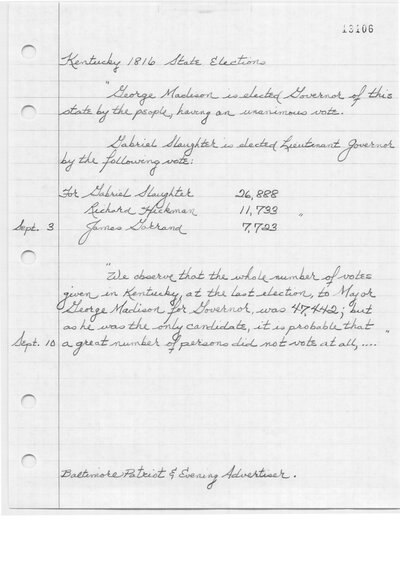 13106
Kentucky 1816 State Elections
"George Madison is elected Governor of this
state by the people, having an unanimous vote.
Gabriel Slaughter is elected Lieutenant Governor
by the following vote:
For Gabriel Slaughter 26,888
Richard Hickman 11,733 "
Sept. 3 James Garrard 7,723
"We observe that the whole number of votes
given in Kentucky, at the last election, to Major
George Madison for Governor, was 47,442; but
as he was the only candidate, it is probable that
Sept. 10 a great number of persons did not vote at all, .... "
Baltimore Patriot & Evening Advertiser.